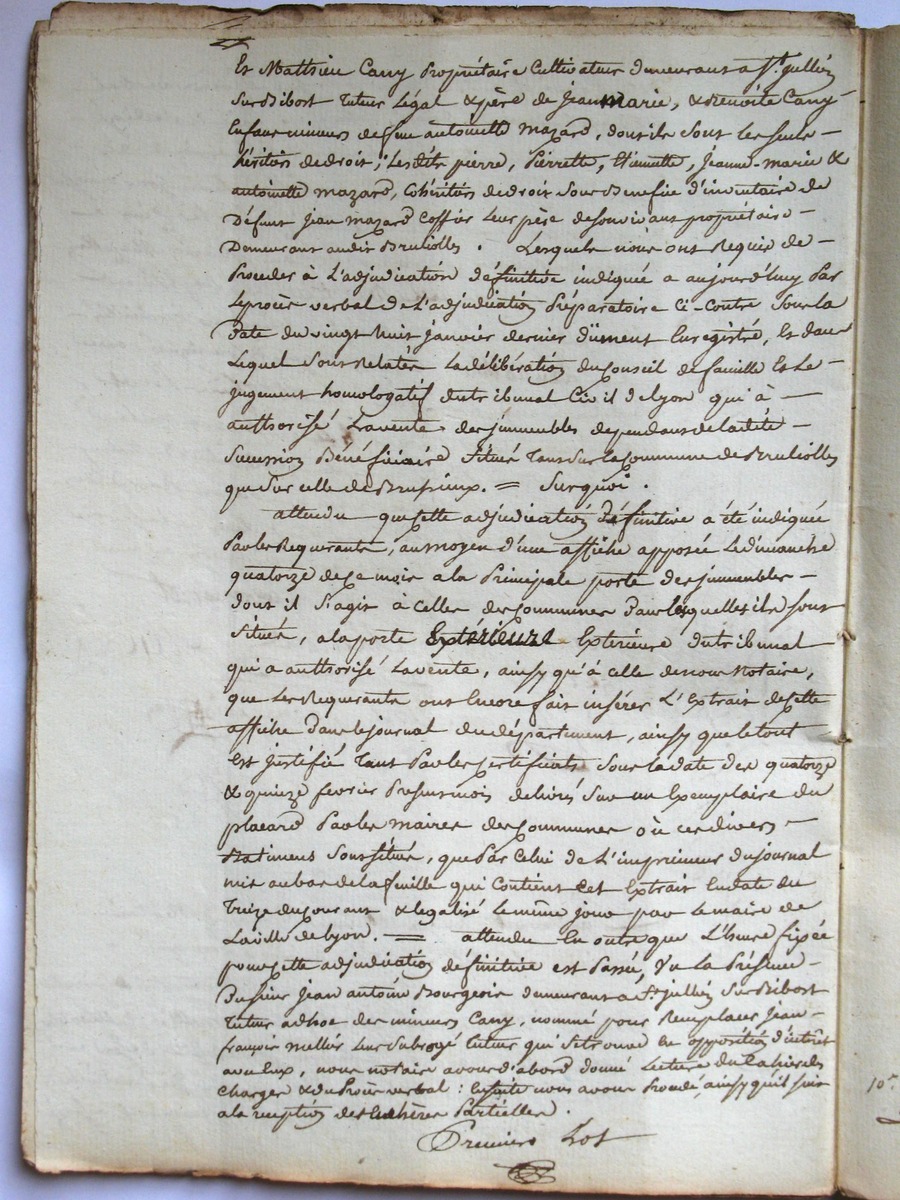 Et Matthieu Cany Propriétaire Cultivateur demeurant a St. Jullien
Sur Bibost tuteur légal & père de Jean Marie, & Benoite Cany
Enfans mineurs de feue antoinette mazard, dont ils sont les seuls
héritiers de droit ; Lesdits pierre, Pierrette, Etiennette, Jeanne-marie &
antoinette mazard, Cohéritiers de droit sous Bénéfice d'inventaire de
Défunt Jean mazard Coffier leur père de son vivant propriétaire
Demeurant audit Bruliolles. Lesquels nous ont Requis de
Proceder à L'adjudication définitive indiquée a aujourd'huy par
Le procès verbal de L'adjudication Préparatoire Ci-contre Sous la
Date du vingt huit janvier dernier dûment Enregistré, Et dans
Lequel Sont Relatés La délibération du Conseil de famille Et Le
jugement homologatif du tribunal Civil de lyon qui à
authorisé La vente des immeubles dependans de ladite
Succession Bénéficiaire Situés tant Sur la Commune de Brulliolles
que Sur celle de Brussieux. = Sur quoi.
attendu que cette adjudication définitive a été indiquée
Par les Requerants, au moyen d'une affiche apposée Le dimanche
quatorze de ce mois a la Principale porte des immeubles
dont il S'agit à celles des Communes dans lesquelles ils sont
Situés, a la porte Extérieure Exterieure du tribunal
qui a authorisé La vente, ainsy qu'à celle de nous Notaire,
que Les Requerants ont Encore fait insérer L'Extrait de cette
affiche Dans le journal du département, ainsy que le tout
Est justifié tant Par les Certificats Sous la date des quatorze
& quinze février Présent mois délivrés Sur un Exemplaire du
placard Par les maires des Communes où ces divers
Batimens Sont Situés, que Par Celui de L'imprimeur du journal
mis au bas de la feuille qui Contient Cet Extrait En date du
treize du Courant & légalisé Le même jour par Le maire de
La ville de lyon. = attendu En outre que L'heure fixée
pour cette adjudication définitive est Passée, Vu La Présence
Du sieur Jean antoine Bourgeois demeurant a St. jullien Sur Bibost
tuteur adhoc des mineurs Cany, nommé pour Remplacer Jean
françois mellier Leur Subrogé tuteur qui Se trouve En opposition d'intérêt
avec Eux, nous notaire avons d'abord donné Lecture du Cahier des
Charges & du Procès verbal : Ensuite nous avons Procédé, ainsy qu'il suit
a la réception des Enchères Partielles.
Premier Lot
10e.